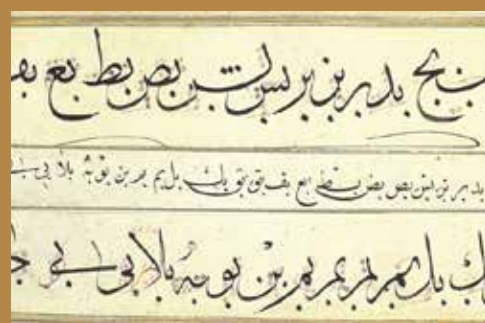 بج بد بر بن بر بس بص بط بع بف
بد بر بن بس بص بط بع بف بق بك بل بم بم بن بو به بلا بى بے
بك بل بم بم بم بم بن بو به بلا بى بے جا